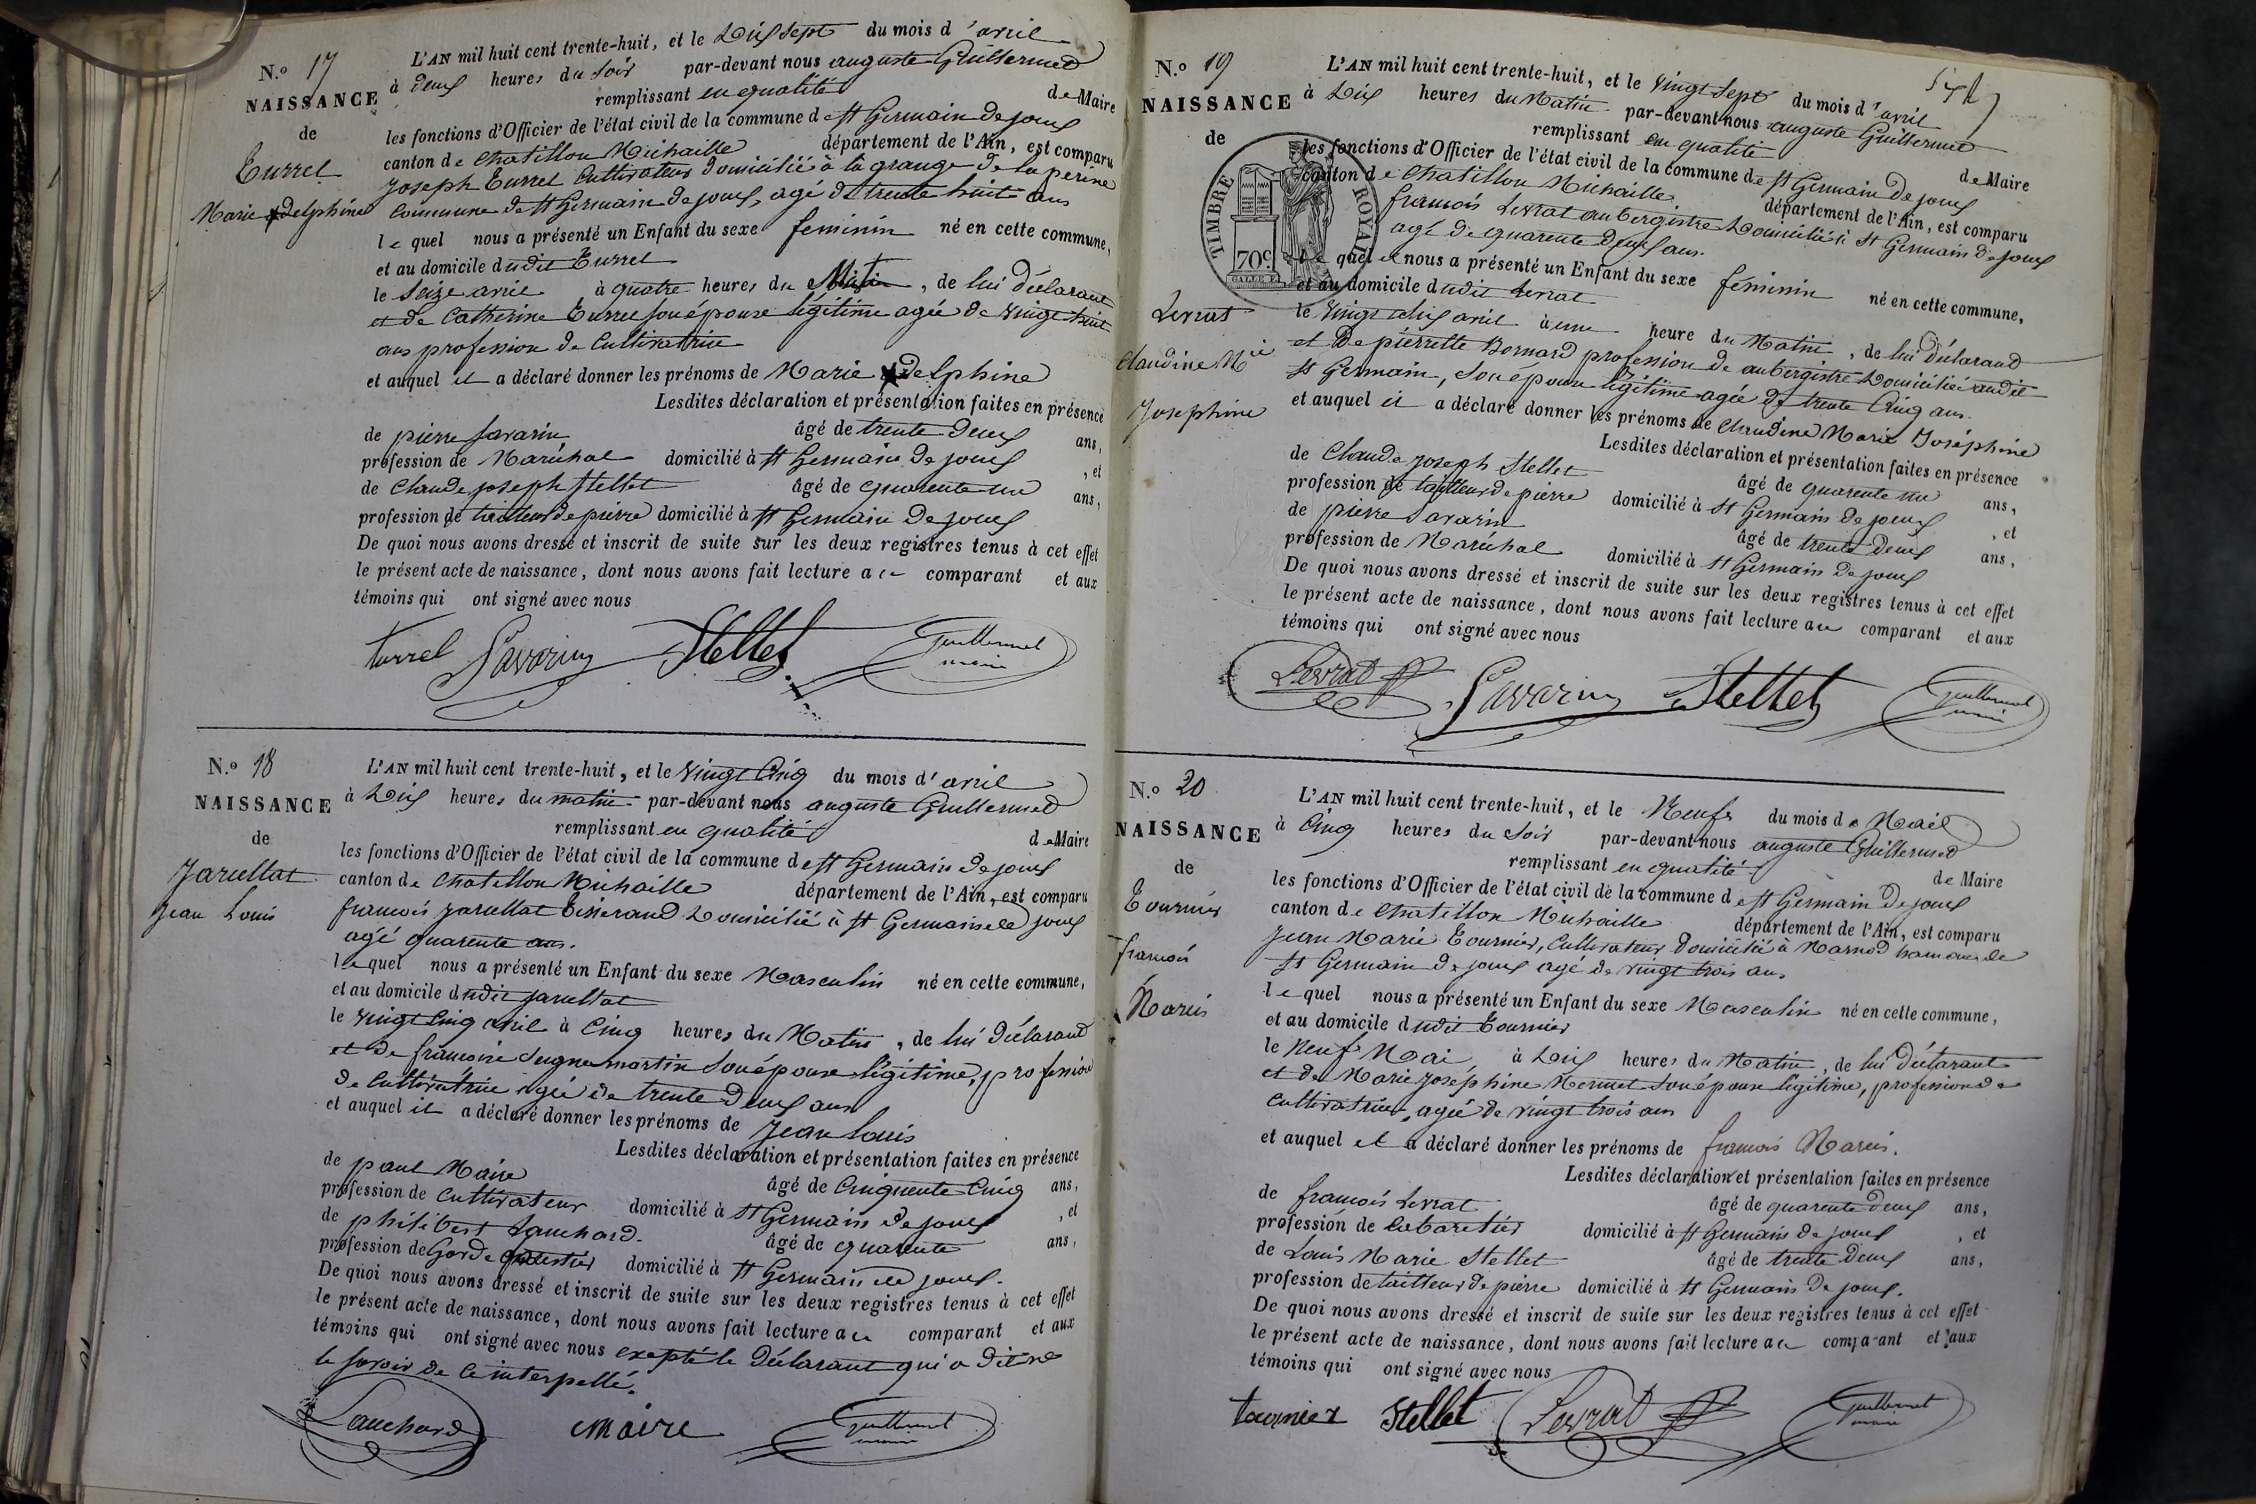 N.º 17
NAISSANCE
de
Turrel
Marie Delphine
L'AN mil huit cent trente-huit, et le Dix sept du mois d'avril
à deux heures du soir par-devant nous auguste Guillermet
remplissant en qualité de Maire
les fonctions d'Officier de l'état civil de la commune de St Germain de joux
canton de Chatillon Michaille département de l'Ain, est comparu
joseph Turrel Cultivateur Domicilié à la grange de la perine
Commune de St Germain de joux, agé de trente huit ans
le quel nous a présenté un Enfant du sexe feminin né en cette commune,
et au domicile dudit Turrel
le seize avril à quatre heures du Matin, de lui Déclarant
et de Catherine Turrel son épouse légitime agée de vingt huit
ans profession de Cultivatrice
et auquel il a déclaré donner les prénoms de Marie Delphine
Lesdites déclaration et présentation faites en présence
de pierre Savarin âgé de trente deux ans,
profession de Maréchal domicilié à St Germain de joux, et
de Claude joseph Stellet âgé de quarente un ans,
profession de tailleur de pierre domicilié à St Germain de joux
De quoi nous avons dressé et inscrit de suite sur les deux registres tenus à cet effet
le présent acte de naissance, dont nous avons fait lecture au comparant et aux
témoins qui ont signé avec nous
turrel Savarin Stellet Guillermet
maire
N.º 18
NAISSANCE
de
Jarullat
Jean Louis
L'AN mil huit cent trente-huit, et le vingt Cinq du mois d'avril
à Dix heures du matin par-devant nous auguste Guillermet
remplissant en qualité de Maire
les fonctions d'Officier de l'état civil de la commune de St Germain de joux
canton de Chatillon Michaille département de l'Ain, est comparu
francois jarullat Tisserand Domicilié à St Germain de joux
agé quarente ans.
lequel nous a présenté un Enfant du sexe Masculin né en cette commune,
et au domicile dudit jarullat
le vingt Cinq avril à Cinq heures du Matin, de lui Déclarand
et de francoise Seignemartin son épouse légitime, profession
de Cultivatrice agée de trente Deux ans
et auquel il a déclaré donner les prénoms de jean Louis
Lesdites déclaration et présentation faites en présence
de paul Maire âgé de Cinquente Cinq ans,
profession de Cultivateur domicilié à St Germain de joux, et
de philibert Lauchard âgé de quarente ans,
profession de Garde forestier domicilié à St Germain de joux.
De quoi nous avons dressé et inscrit de suite sur les deux registres tenus à cet effet
le présent acte de naissance, dont nous avons fait lecture au comparant et aux
témoins qui ont signé avec nous excepté le Déclarant qui a dit ne
le savoir de Ce interpellé.
Lauchard Maire Guillermet
maire
N.º 19
NAISSANCE
de
TIMBRE ROYAL
70 c.
Levrat
Claudine Mie
Josephine
L'AN mil huit cent trente-huit, et le vingt sept du mois d'avril
à Dix heures du Matin par-devant nous auguste Guillermet
remplissant en qualité de Maire
les fonctions d'Officier de l'état civil de la commune de St Germain de joux
canton de Chatillon Michaille département de l'Ain, est comparu
francois Levrat aubergistre Domicilié à St Germain de joux
agé de quarente Deux ans.
le quel nous a présenté un Enfant du sexe féminin né en cette commune,
et au domicile dudit Levrat
le vingt six avril à une heure du Matin, de lui Déclarand
et De pierrette Bornard profession de aubergistre Domiciliée audit
St Germain, son épouse légitime agée de trente Cinq ans.
et auquel il a déclaré donner les prénoms de Claudine Marie Joséphine
Lesdites déclaration et présentation faites en présence
de Claude joseph Stellet âgé de quarente un ans,
profession de tailleur de pierre domicilié à St Germain de joux, et
de pierre Savarin âgé de trente deux ans,
profession de Maréchal domicilié à St Germain de joux
De quoi nous avons dressé et inscrit de suite sur les deux registres tenus à cet effet
le présent acte de naissance, dont nous avons fait lecture au comparant et aux
témoins qui ont signé avec nous
Levrat Savarin Stellet Guillermet
maire
N.º 20
NAISSANCE
de
Tournier
francois
Marius
L'AN mil huit cent trente-huit, et le Neuf du mois de Mai
à Cinq heures du soir par-devant nous auguste Guillermet
remplissant en qualité de Maire
les fonctions d'Officier de l'état civil de la commune de St Germain de joux
canton de Chatillon Michaille département de l'Ain, est comparu
Jean Marie Tournier, Cultivateur Domicilié à Marnod hameau de
St Germain de joux agé de vingt trois ans
le quel nous a présenté un Enfant du sexe Masculin né en cette commune,
et au domicile dudit Tournier
le Neuf Mai à Dix heures du Matin, de lui Déclarant
et de Marie Joséphine Mermet son épouse légitime, profession de
cultivatrice, agée de vingt trois ans
et auquel il a déclaré donner les prénoms de francois Marius.
Lesdites déclaration et présentation faites en présence
de francois Levrat âgé de quarente deux ans,
profession de Cabaretier domicilié à St Germain de joux, et
de Louis Marie Stellet âgé de trente deux ans,
profession de tailleur de pierre domicilié à St Germain de joux.
De quoi nous avons dressé et inscrit de suite sur les deux registres tenus à cet effet
le présent acte de naissance, dont nous avons fait lecture au comparant et aux
témoins qui ont signé avec nous
tournier Stellet Levrat Guillermet
maire